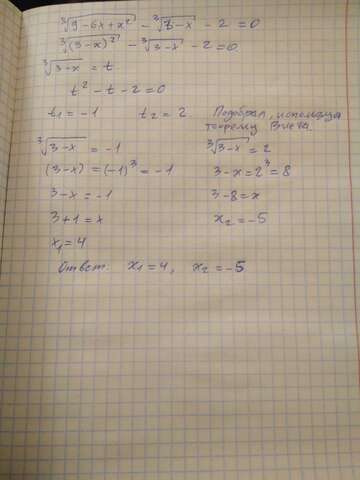 ∛(9-6x+x²) - ∛(3-x) - 2 = 0
∛((3-x)²) - ∛(3-x) - 2 = 0.
∛(3-x) = t.
t² - t - 2 = 0
t₁ = -1 t₂ = 2. Подобрал, используя теорему Виета.
∛(3-x) = -1 ∛(3-x) = 2
(3-x) = (-1)³ = -1 3-x = 2³ = 8
3-x = -1 3-8 = x
3+1 = x x₂ = -5
x₁ = 4
Ответ: x₁ = 4, x₂ = -5